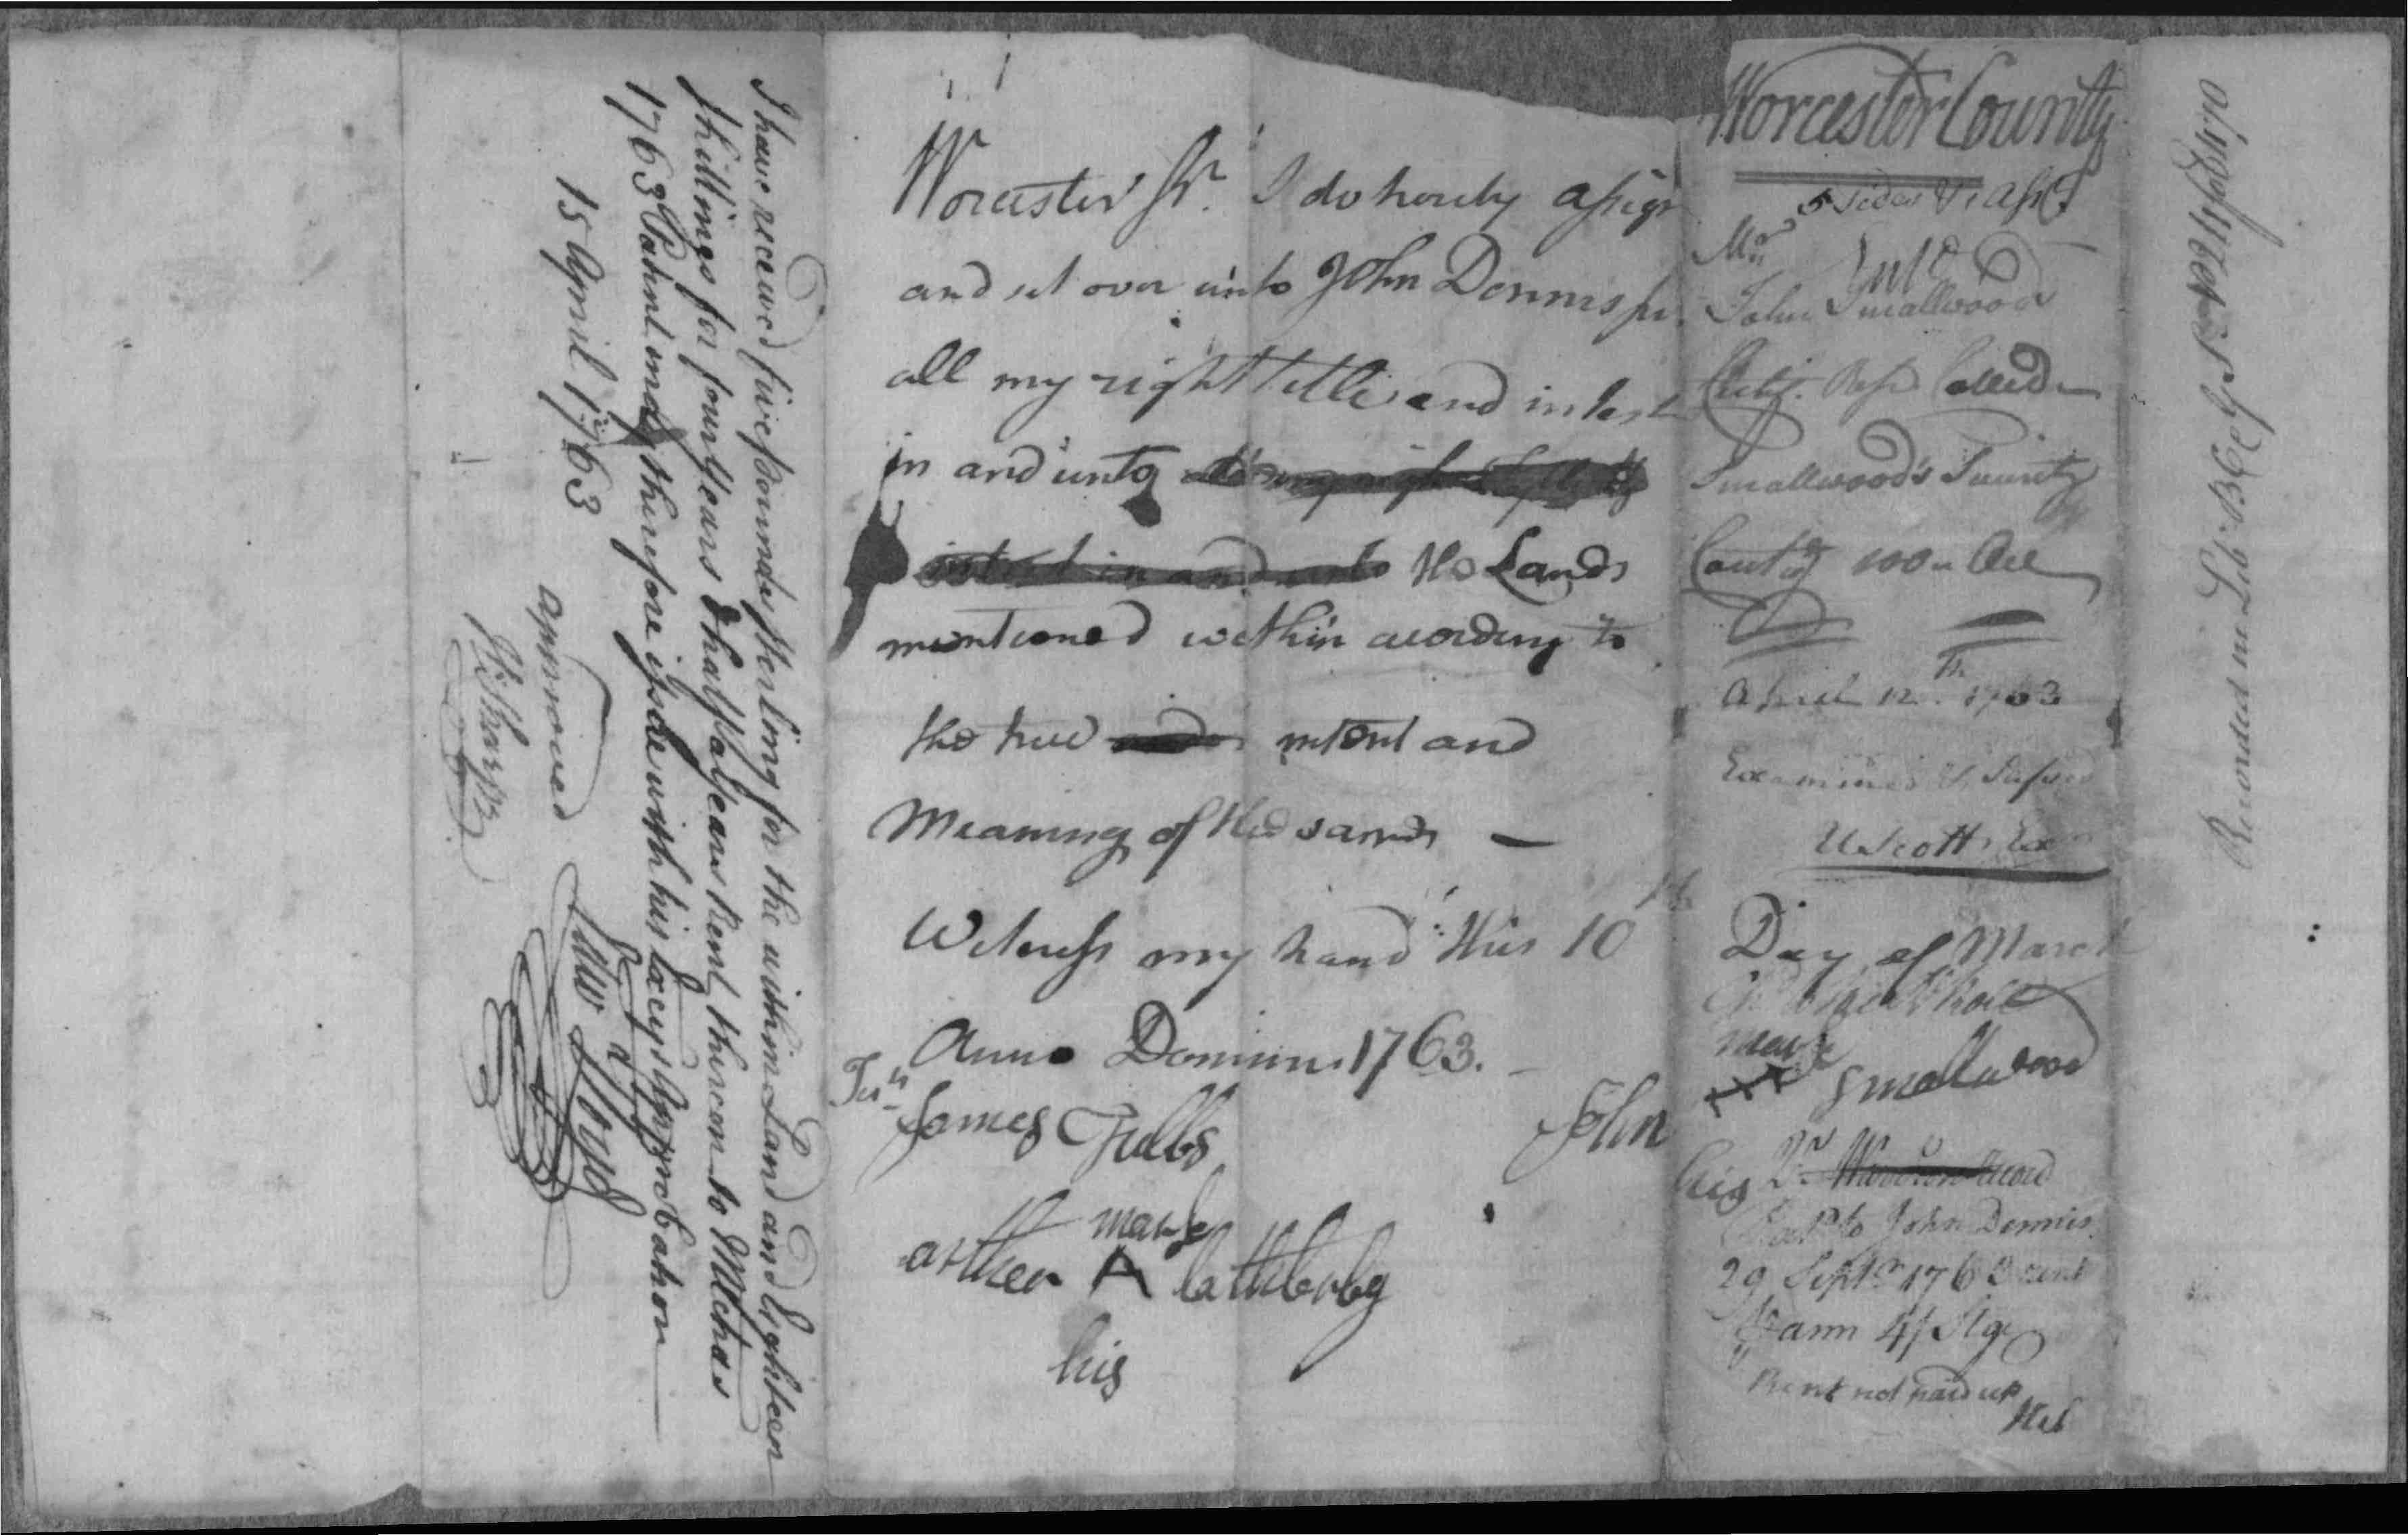 I have received five pounds sterling for the within Land and Eighteen
Shillings for four years & half a years Rent thereon to Michas
1763 Patent may therefore issue with his Exc'ys Approbation
15 April 1763
Edw Lloyd
approved
Hº Sharpe
Worcester Sct. I do hereby assign
and set over unto John Dennis jur.
all my right title and interest
in and unto
interest in and unto the Lands
mentioned within acording to
the true intent and
Meaning of the same —
Witness my hand this 10th Day of March
Anno Domini 1763.
Test
James Tulls
mark
arther A
his
John Smallwood
mark
his
Worcester County
5 sides & Asst
John Smallwood
Certif. Resr. Called
Smallwood's Swinity
Contg 100 Acr
April 12th 1763
Examined & Passed
U Scott Exr
Pat to John Dennis
29 Septr 1763 rent
P ann 4/ Stg
Rent not paid up
Recorded in Lib. BC & GS No